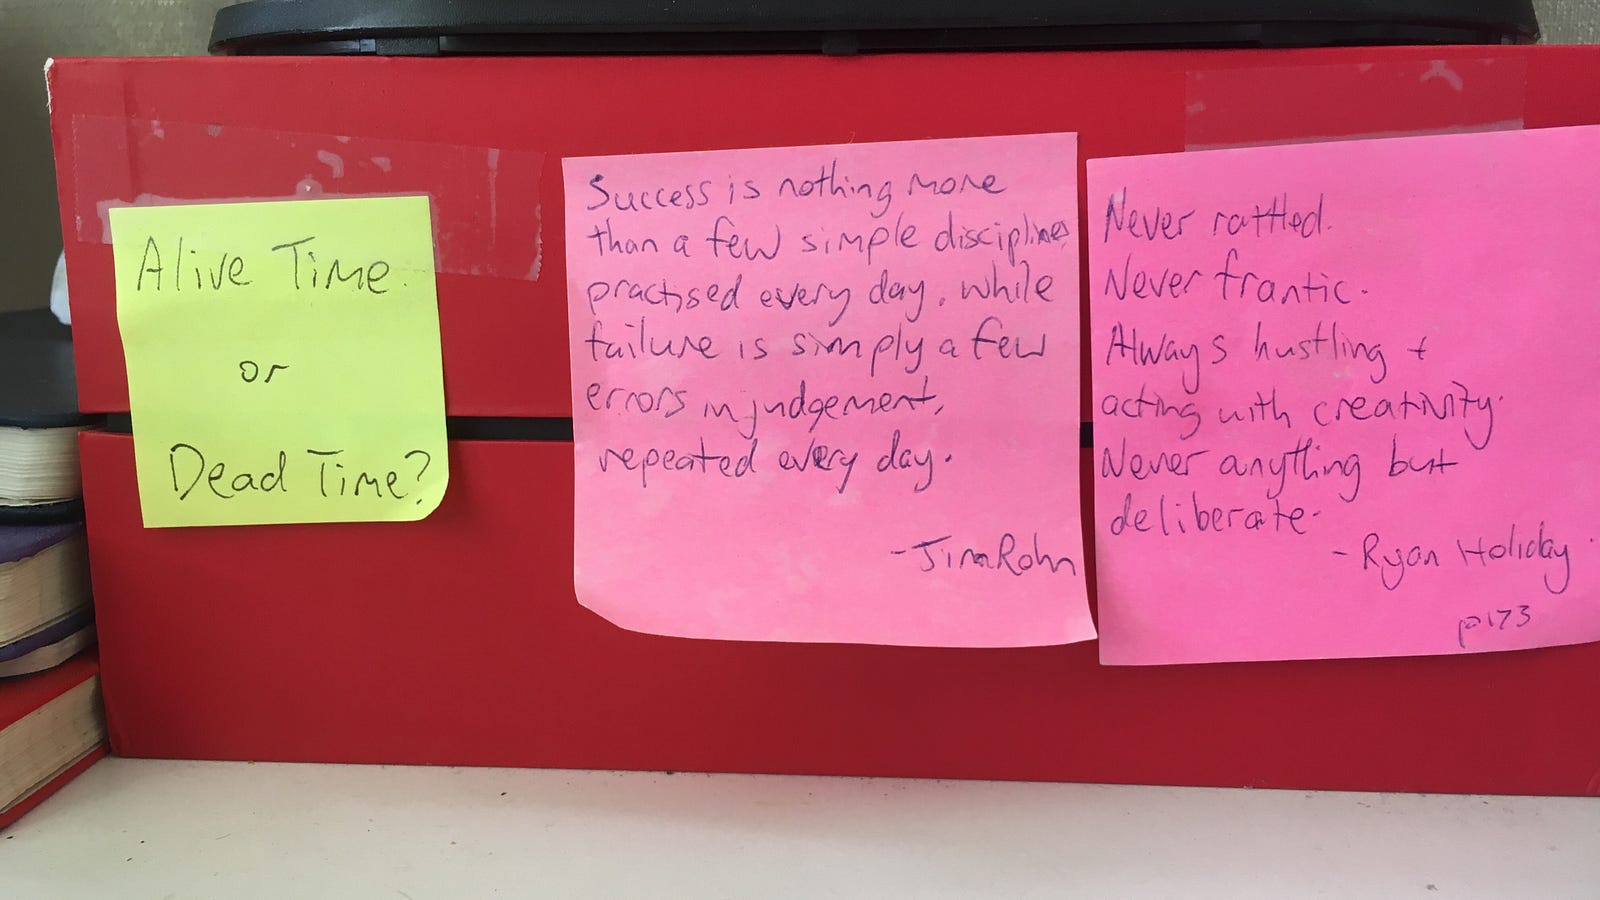 Alive Time.
or
Dead Time?
Success is nothing more
than a few simple disciplines
practised every day, while
failure is simply a few
errors in judgement,
repeated every day.
- Jim Rohn
Never rattled.
Never frantic.
Always hustling +
acting with creativity.
Never anything but
deliberate.
- Ryan Holiday.
p173